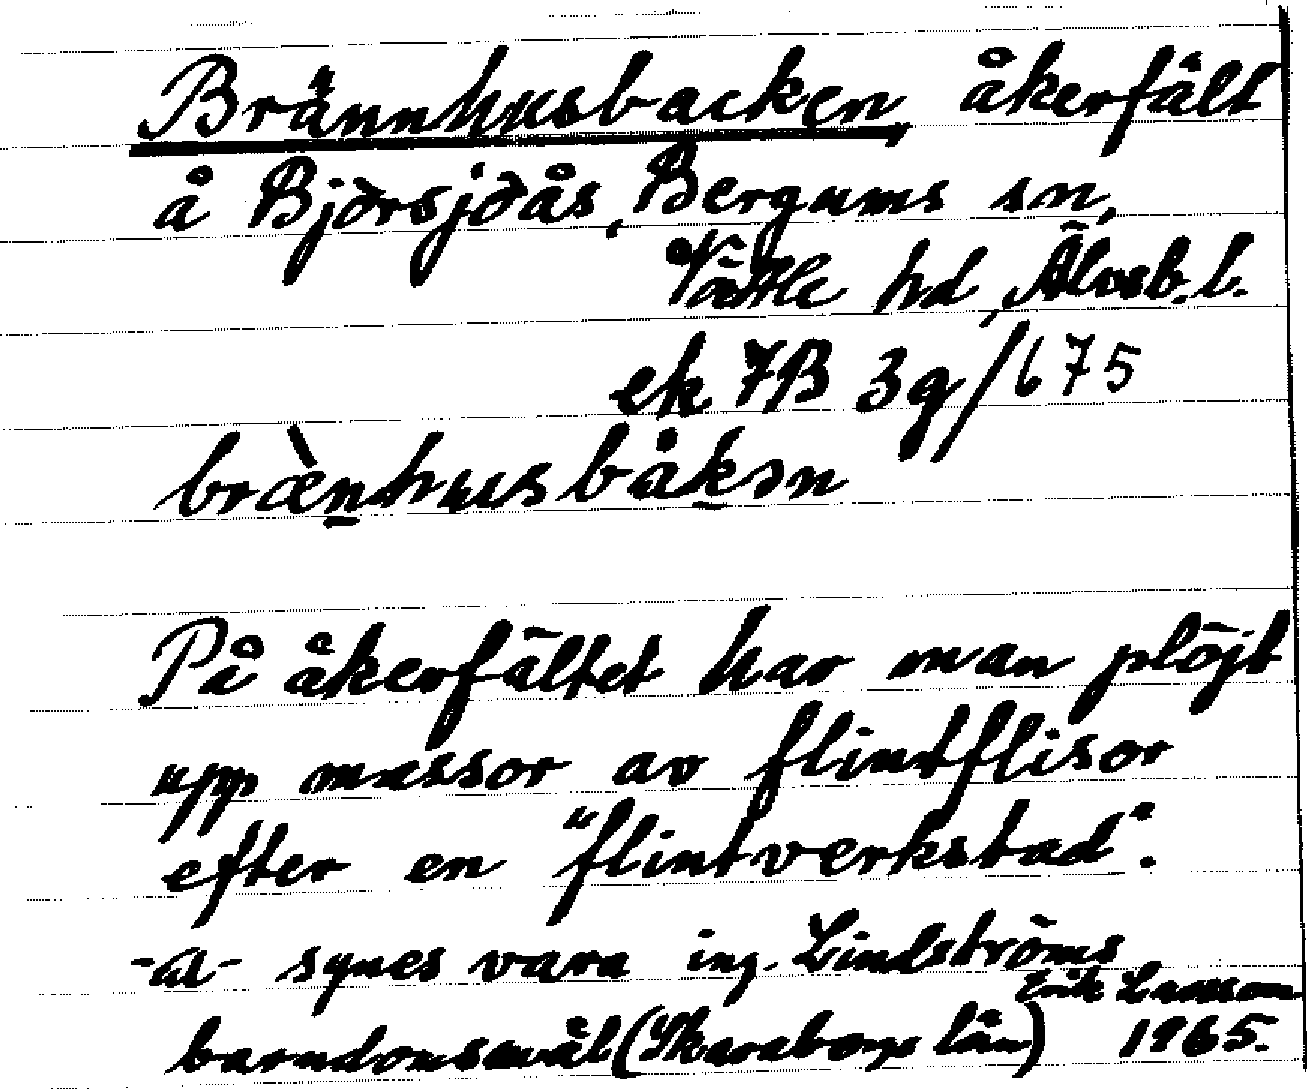 Brännhusbacken, åkerfält
å Björsjöås, Bergums sn,
Vättle hd, Älvsb. l.
ek 7B 3g/675
bræ̀n̲husbåk̲ən
På åkerfältet har man plöjt
upp massor av flintflisor
efter en "flintverkstad".
-a- synes vara ing. Lindströms
barndomsmål (Skaraborgs län)
Erik Larsson
1965.